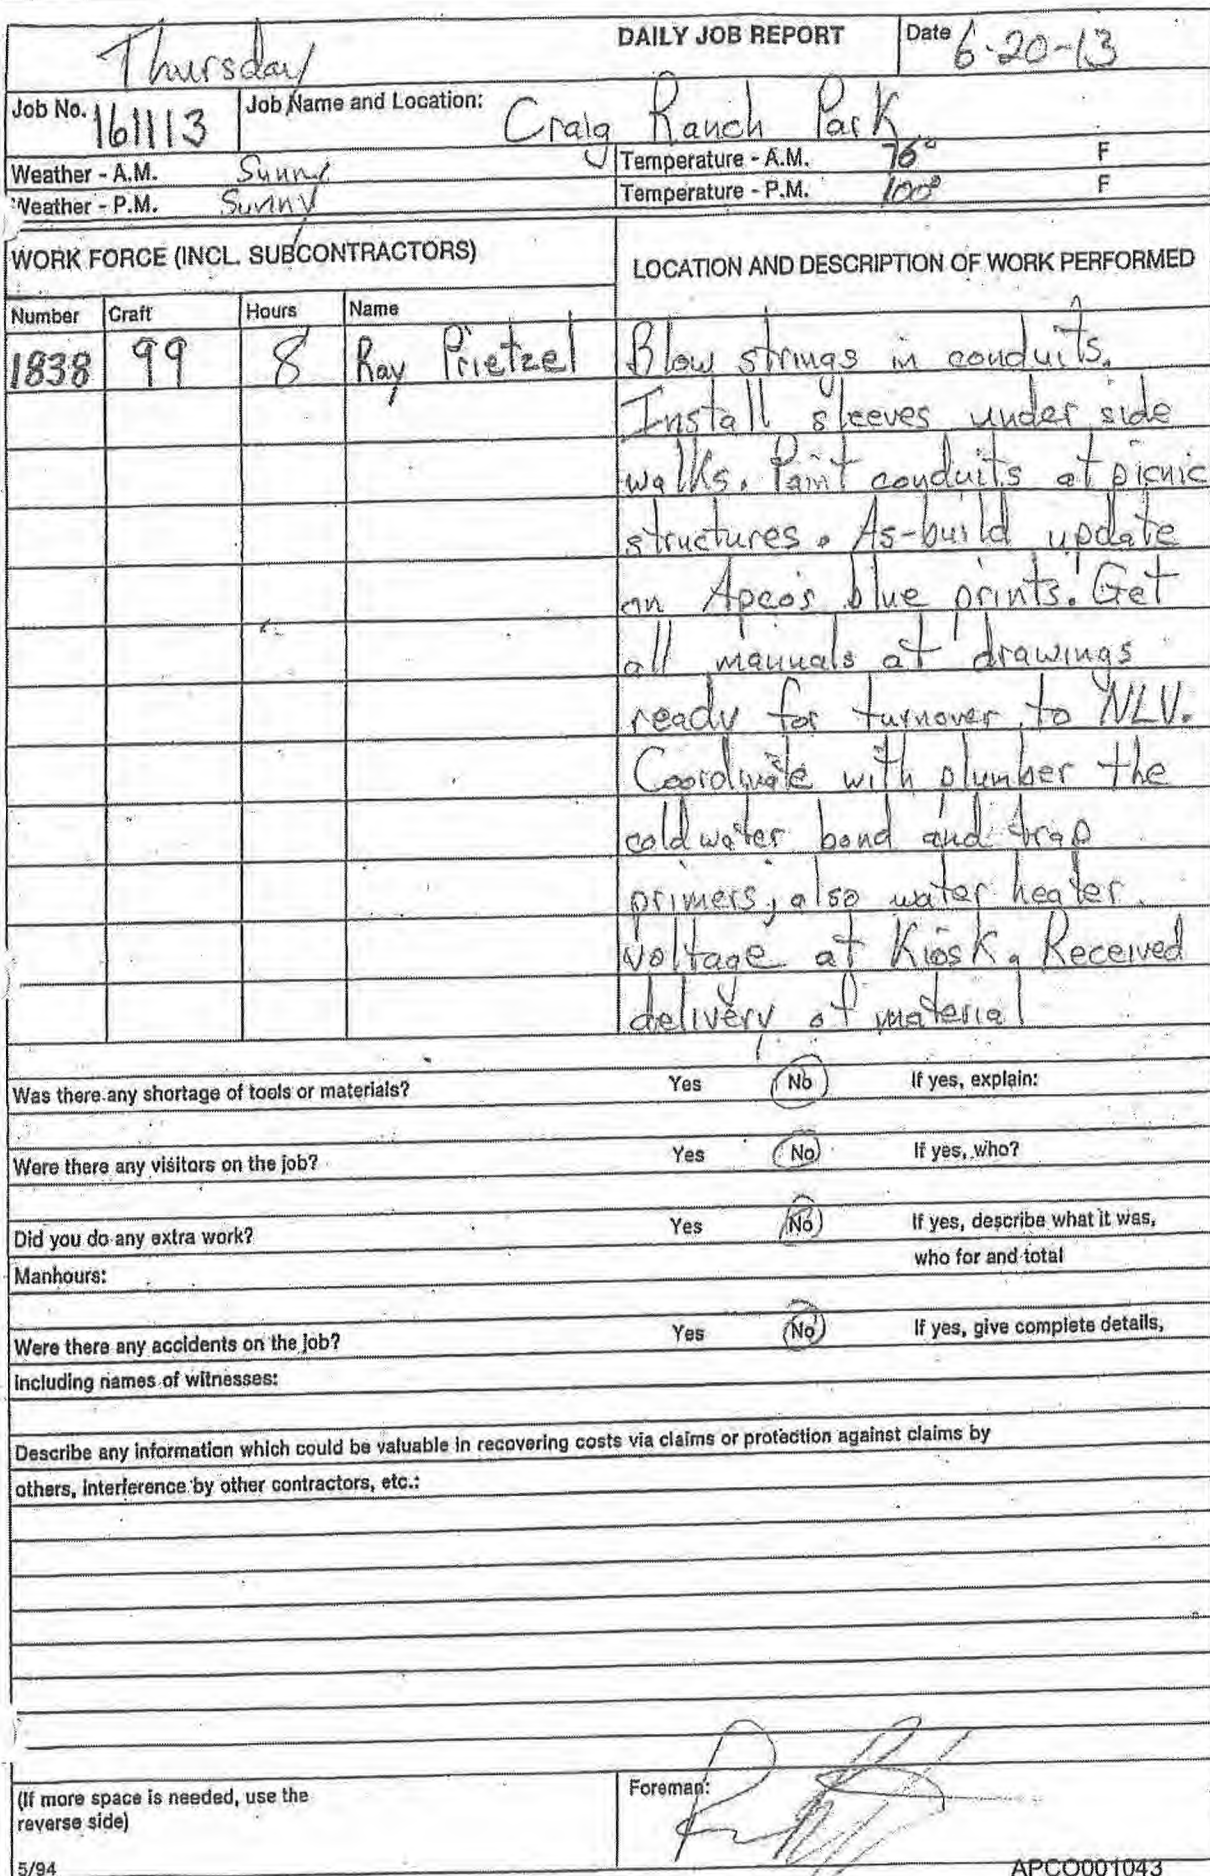 Thursday
DAILY JOB REPORT
Date 6-20-13
Job No. 161113
Job Name and Location: Craig Ranch Park
Weather - A.M. Sunny
Temperature - A.M. 76° F
Weather - P.M. Sunny
Temperature - P.M. 100° F
WORK FORCE (INCL. SUBCONTRACTORS)
LOCATION AND DESCRIPTION OF WORK PERFORMED
Number Craft Hours Name
1838 99 8 Ray Prietzel
Blow strings in conduits.
Install sleeves under side
walks. Paint conduits at picnic
structures. As-build update
on Apco's blue prints. Get
all manuals at drawings
ready for turnover to NLV.
Coordinate with plumber the
cold water bond and trap
primers, also water heater
voltage at Kiosk. Received
delivery of material
Was there any shortage of tools or materials? Yes No If yes, explain:
Were there any visitors on the job? Yes No If yes, who?
Did you do any extra work? Yes No If yes, describe what it was,
who for and total
Manhours:
Were there any accidents on the job? Yes No If yes, give complete details,
including names of witnesses:
Describe any information which could be valuable in recovering costs via claims or protection against claims by
others, interference by other contractors, etc.:
(If more space is needed, use the
reverse side)
Foreman:
5/94
APCO001043